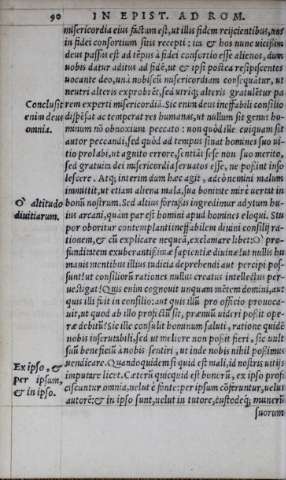 90 IN EPIST. AD ROM.
misericordia eius factum est, ut illis fidem reijcientibus, uos
in fidei consortium sitis recepti: ita & hos nunc uicissim
deus passus est ad tẽpus à fidei consortio esse alienos, dum
uobis datur aditus ad fidẽ, ut & ipsi postea resipiscentes
uocante deo, unà uobiscũ misericordiam consequãtur, ut
neutri alteris exprobrẽt, sed utriq; alteris gratulẽtur pa
Conclusit rem experti misericordiã. Sic enim deus ineffabili consilio
enim deus dispẽsat ac temperat res humanas, ut nullum sit genus ho-
omnia. minum nõ obnoxium peccato: non quòd ille cuiquam sit
autor peccandi, sed quòd ad tempus sinat homines suo ui-
tio prolabi, ut agnito errore, sentiãt sese non suo merito,
sed gratuita dei misericordia seruatos esse, ne possint inso
lescere. Atq; interim dum hæc agit, adeò nemini malum
immittit, ut etiam aliena mala, sua bonitate mirè uertat in
O altitudo bonũ nostrum. Sed altius fortaßis ingredimur adytum hu-
diuitiarum. ius arcani, quàm par est homini apud homines eloqui. Stu
por oboritur contemplanti ineffabilem diuini consilij ra-
tionem, & cũ explicare nequeã, exclamare libet: O pro-
funditatem exuberantißimæ sapientiæ diuinæ: ut nullis hu
manis mentibus illius iudicia deprehendi aut percipi pos-
sunt: ut consiliorũ rationes nullus creatus intellectus per-
uestigat! Quis enim cognouit unquam mẽtem domini, aut
quis illi fuit in consilio: aut quis illũ pro officio prouoca-
uit, ut quod ab illo profectũ sit, præmiũ uideri poßit ope-
ræ debitũ? Sic ille consulit hominum saluti, ratione quidẽ
nobis inscrutabili, sed ut meliore non poßit fieri, sic uult
suũ beneficiũ à nobis sentiri, ut inde nobis nihil poßimus
Ex ipso, & uendicare. Quandoquidem si quid est mali, id nostris uitijs
per ipsum, imputare licet. Cæterũ quicquid est bonorũ, ex ipso profi
& in ipso. ciscuntur omnia, uelut è fonte: per ipsum cõferuntur, uelut
autorẽ: & in ipso sunt, uelut in tutore, custodeq; munerũ
suorum